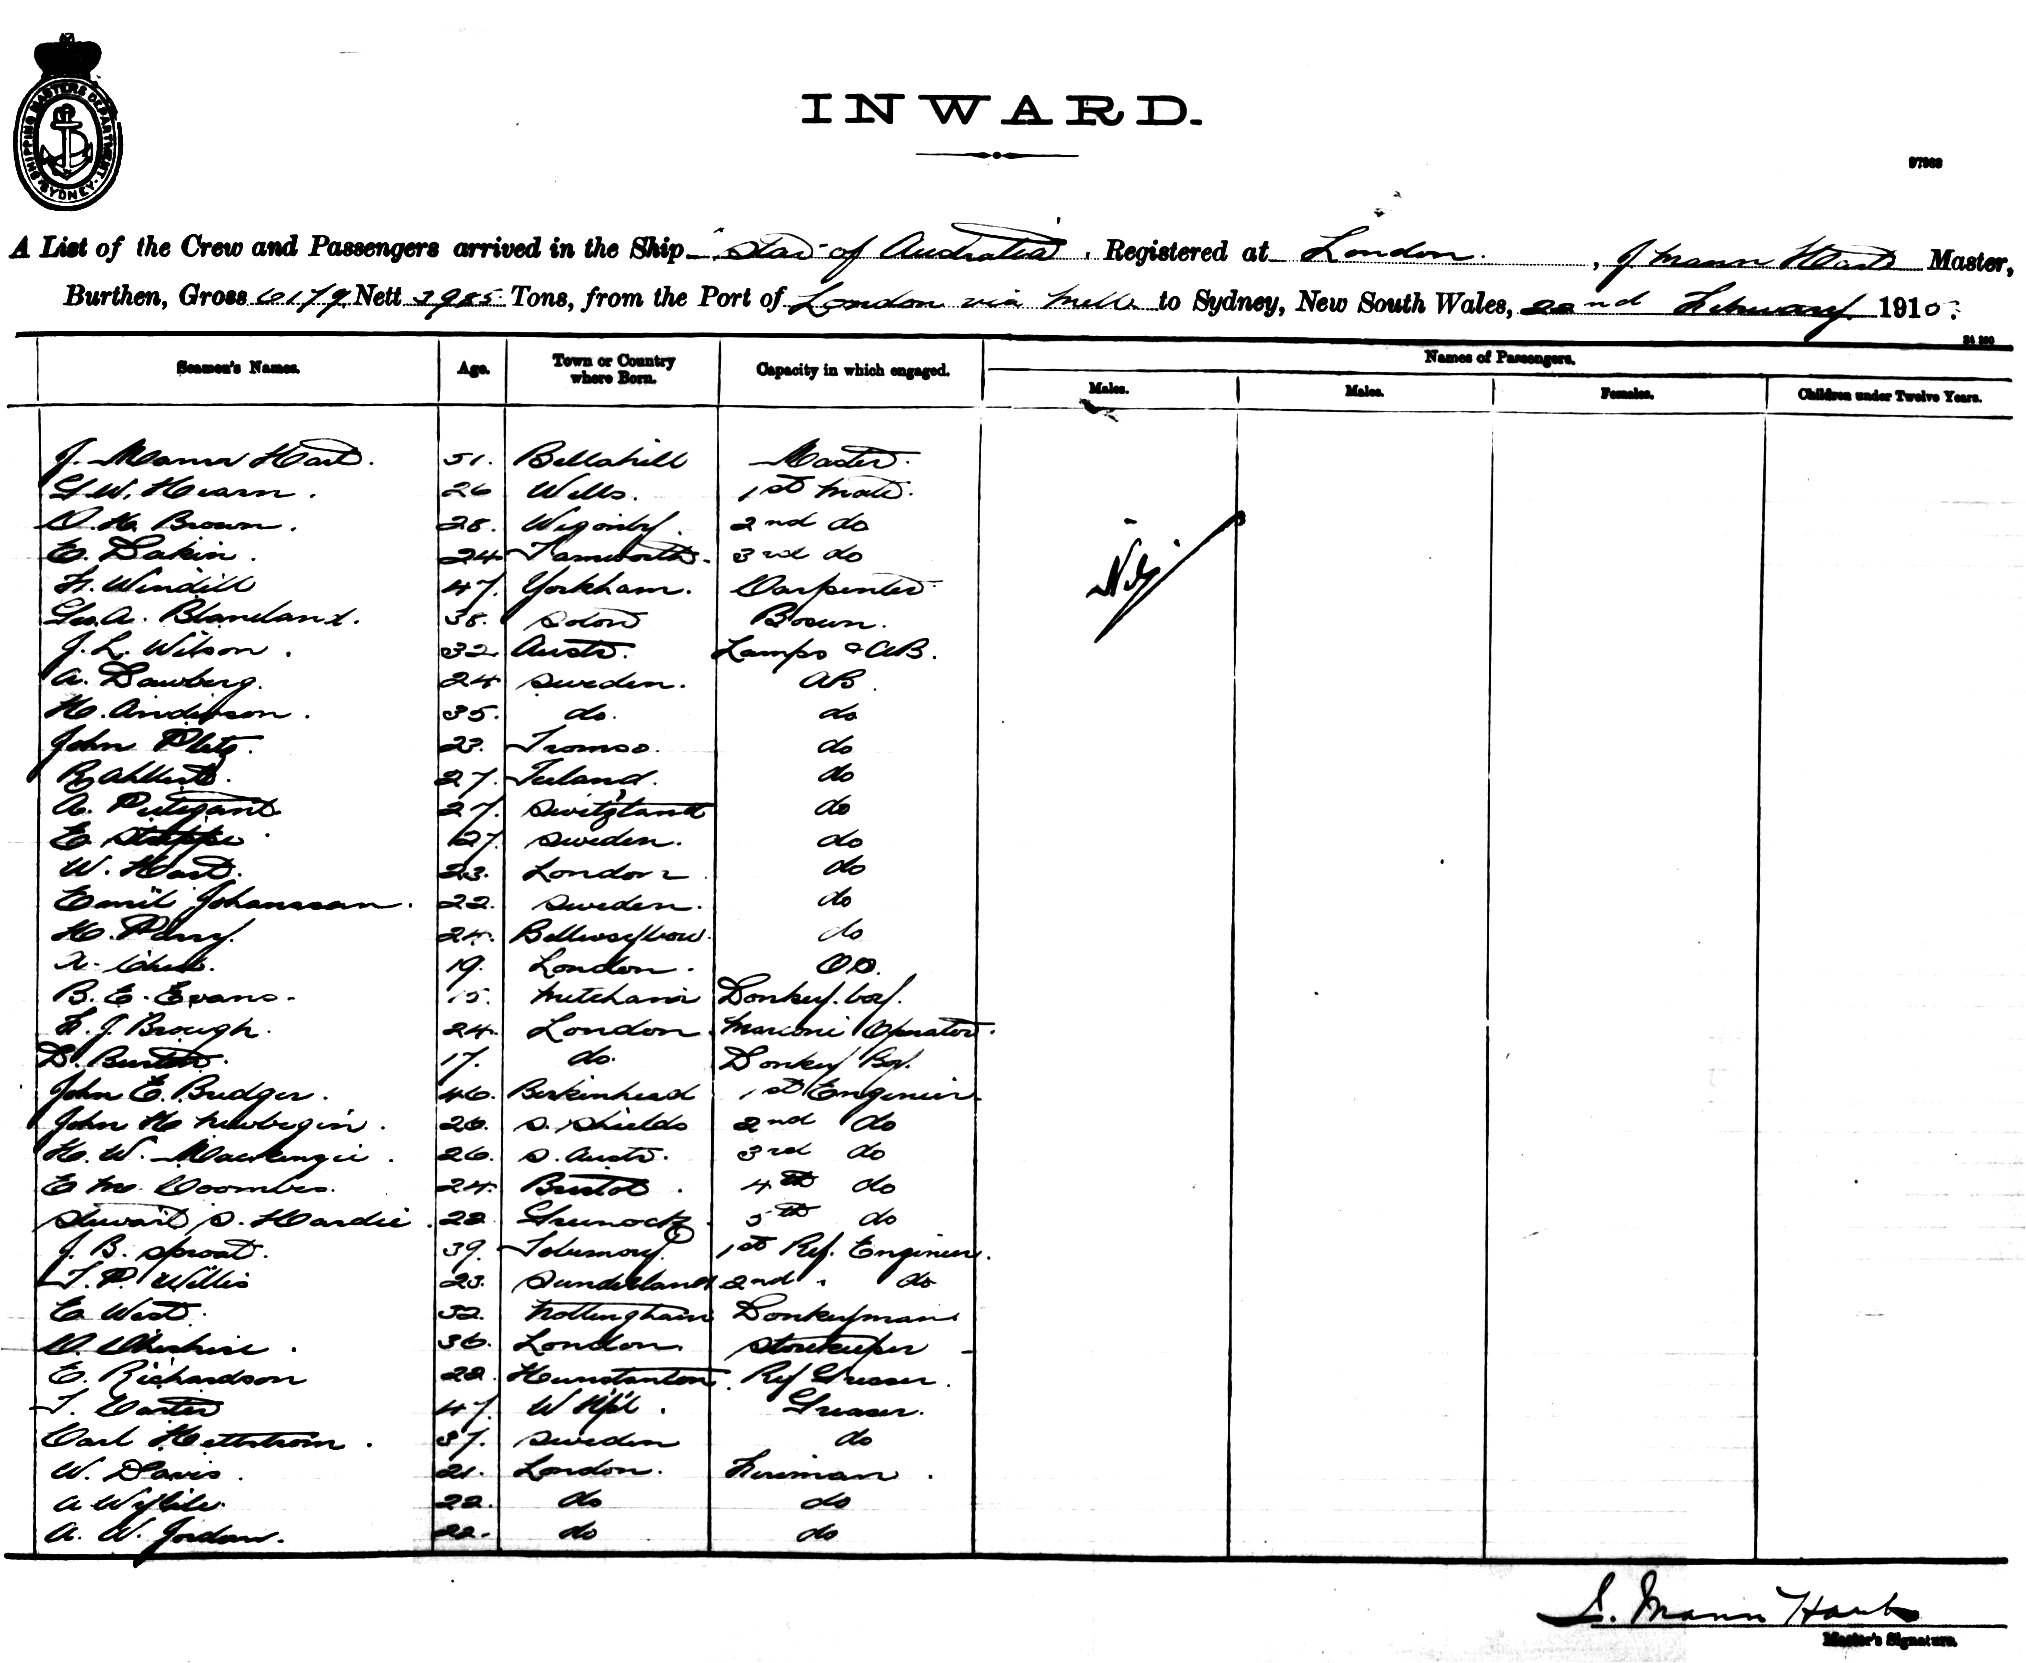 SHIPPING MASTERS DEPARTMENT SYDNEY
INWARD.
A List of the Crew and Passengers arrived in the Ship "Star of Australia", Registered at London, J Mann Hart Master,
Burthen, Gross 6179 Nett Tons, from the Port of London via Melb to Sydney, New South Wales, 22nd February 1910.
Names of Passengers.
Seamen's Names. Age. Town or Country where Born. Capacity in which engaged. Males. Males. Females. Children under Twelve Years.
J. Mann Hart. 51. Bellahill Master.
G. W. Hearn. 26 Wells. 1st Mate.
C. H. Brown. 28. 2nd do
E. Dakin. 24 Tamworth. 3rd do
47. Yorkham. Carpenter
Geo. A. Blaneland. 38. Bosun.
J. L. Wilson. 32 Austr. Lamps & AB.
A. Dawberg. 24 Sweden. AB.
H. Anderson. 35. do. do
John 23. Tromso. do
27. do
A. 27. Switz'land do
E. 27. Sweden. do
W. Hart. 23. London do
Emil Johansson. 22. Sweden. do
H. Parry. 24. do
19. London. OS.
B. E. Evans. 15. Mitcham Donkey boy.
F. J. Brough. 24. London. Marconi Operator.
D. 17. do. Donkey Boy.
John E. Bridger. 46. Birkenhead 1st Engineer.
John H Newbegin. 26. S. Shields 2nd do
H. W. Mackenzie. 26. S. Austr. 3rd do
E M Coombes. 24. Bristol. 4th do
Stewart S. Hardie. 22 Greenock. 5th do
J. B. Sproat. 39. Tobermory. 1st Ref. Engineer.
T. P. Willis 23. Sunderland 2nd " do
E. West. 32. Nottingham Donkeyman
C. Cheshire. 36. London. Storekeeper
E. Richardson 22. Hunstanton. Ref Greaser.
T. Carter 47. W H'pl. Greaser.
Carl Hettstrom. 37. Sweden do
W. Davis. 21. London. Fireman.
A Wyllie. 22. do do
A. W. Jordan. 22. do do
Nil
J. Mann Hart
Master's Signature.